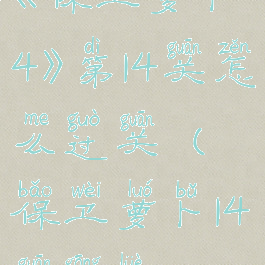 《保卫萝卜
4》第14关怎
么过关（
保卫萝卜14